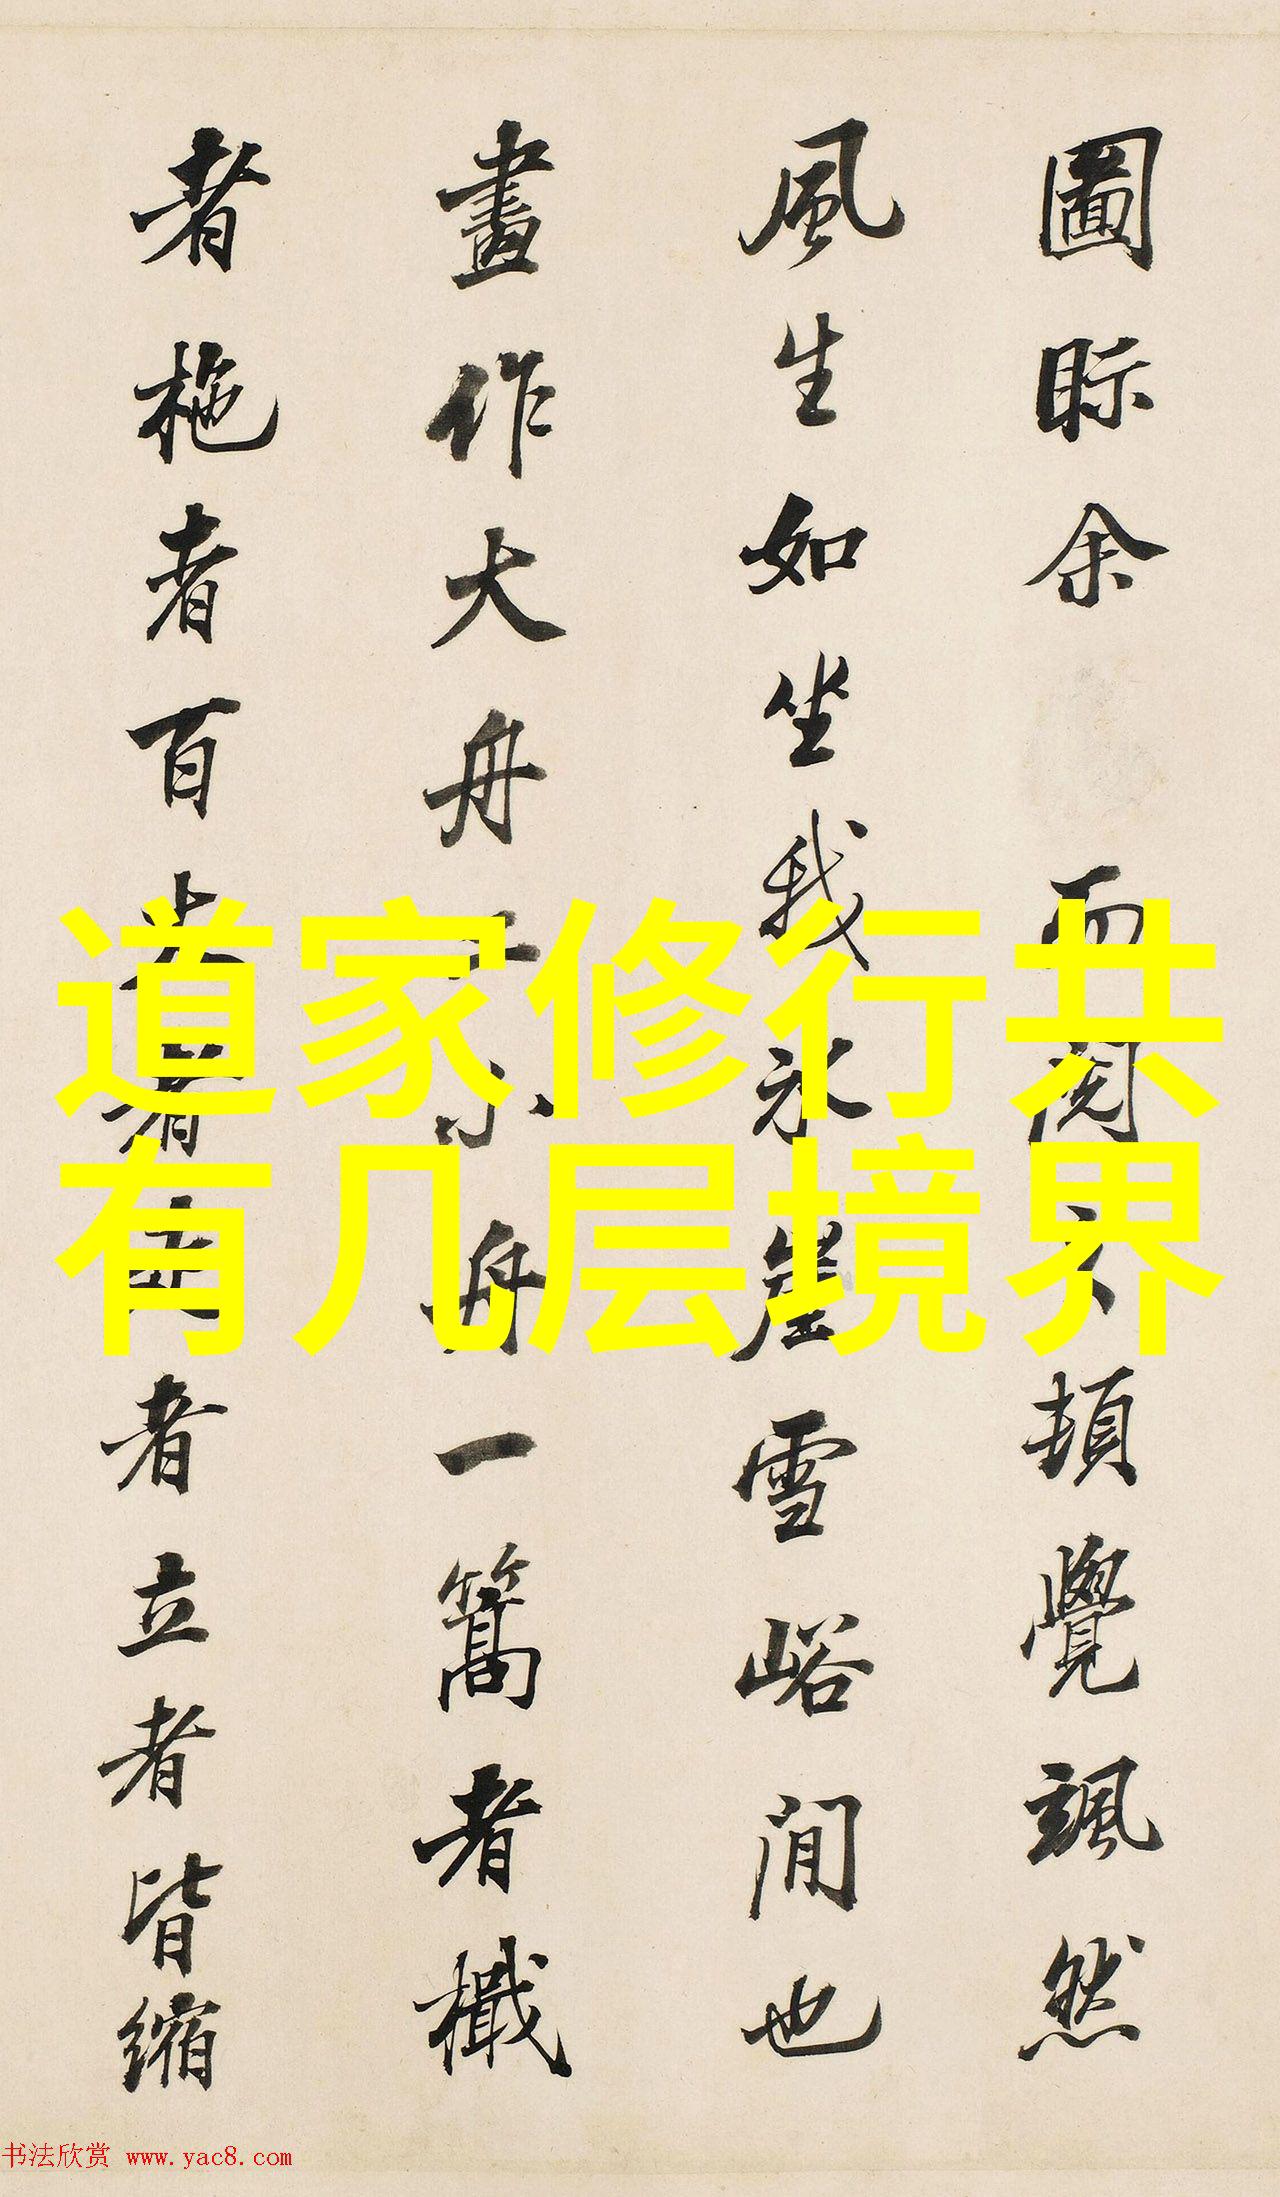 道家修行共
有几层境界
圖眎余而閱之頓覺颯然
風生如坐我氷崖雪峪間也
畫作大舟二小舟一篙者檝
者柂者百者者立者皆縮
书法欣赏 www.yac8.com